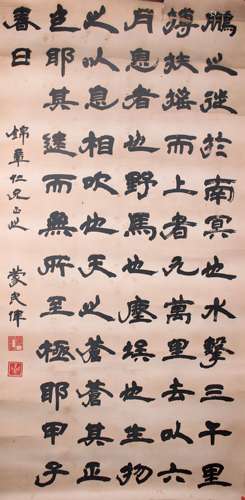 鵬之徙於南冥也水擊三千里
摶扶搖而上者九萬里去以六
月息者也野馬也塵埃也生物
之以息相吹也天之蒼蒼其正
色耶其遠而無所至極耶甲子
春日
錦章仁兄正之 蒙民偉